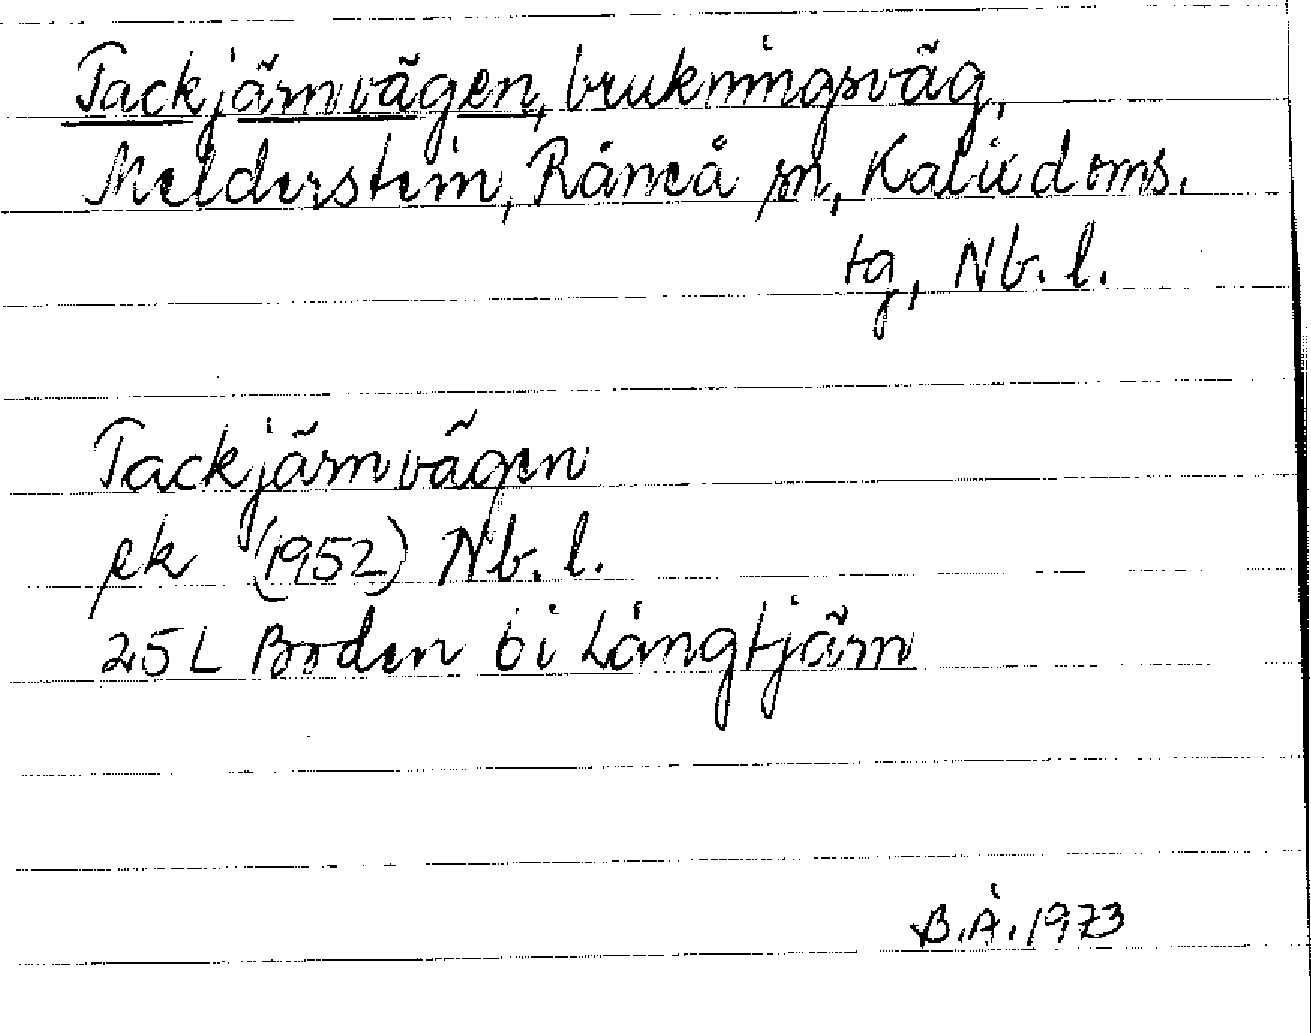 Tackjärnvägen, brukningsväg,
Melderstein, Råneå sn, Kalix doms.
tg, Nb. l.
Tackjärnvägen
ek (1952) Nb. l.
25 L Boden bi Långtjärn
B.Å. 1973